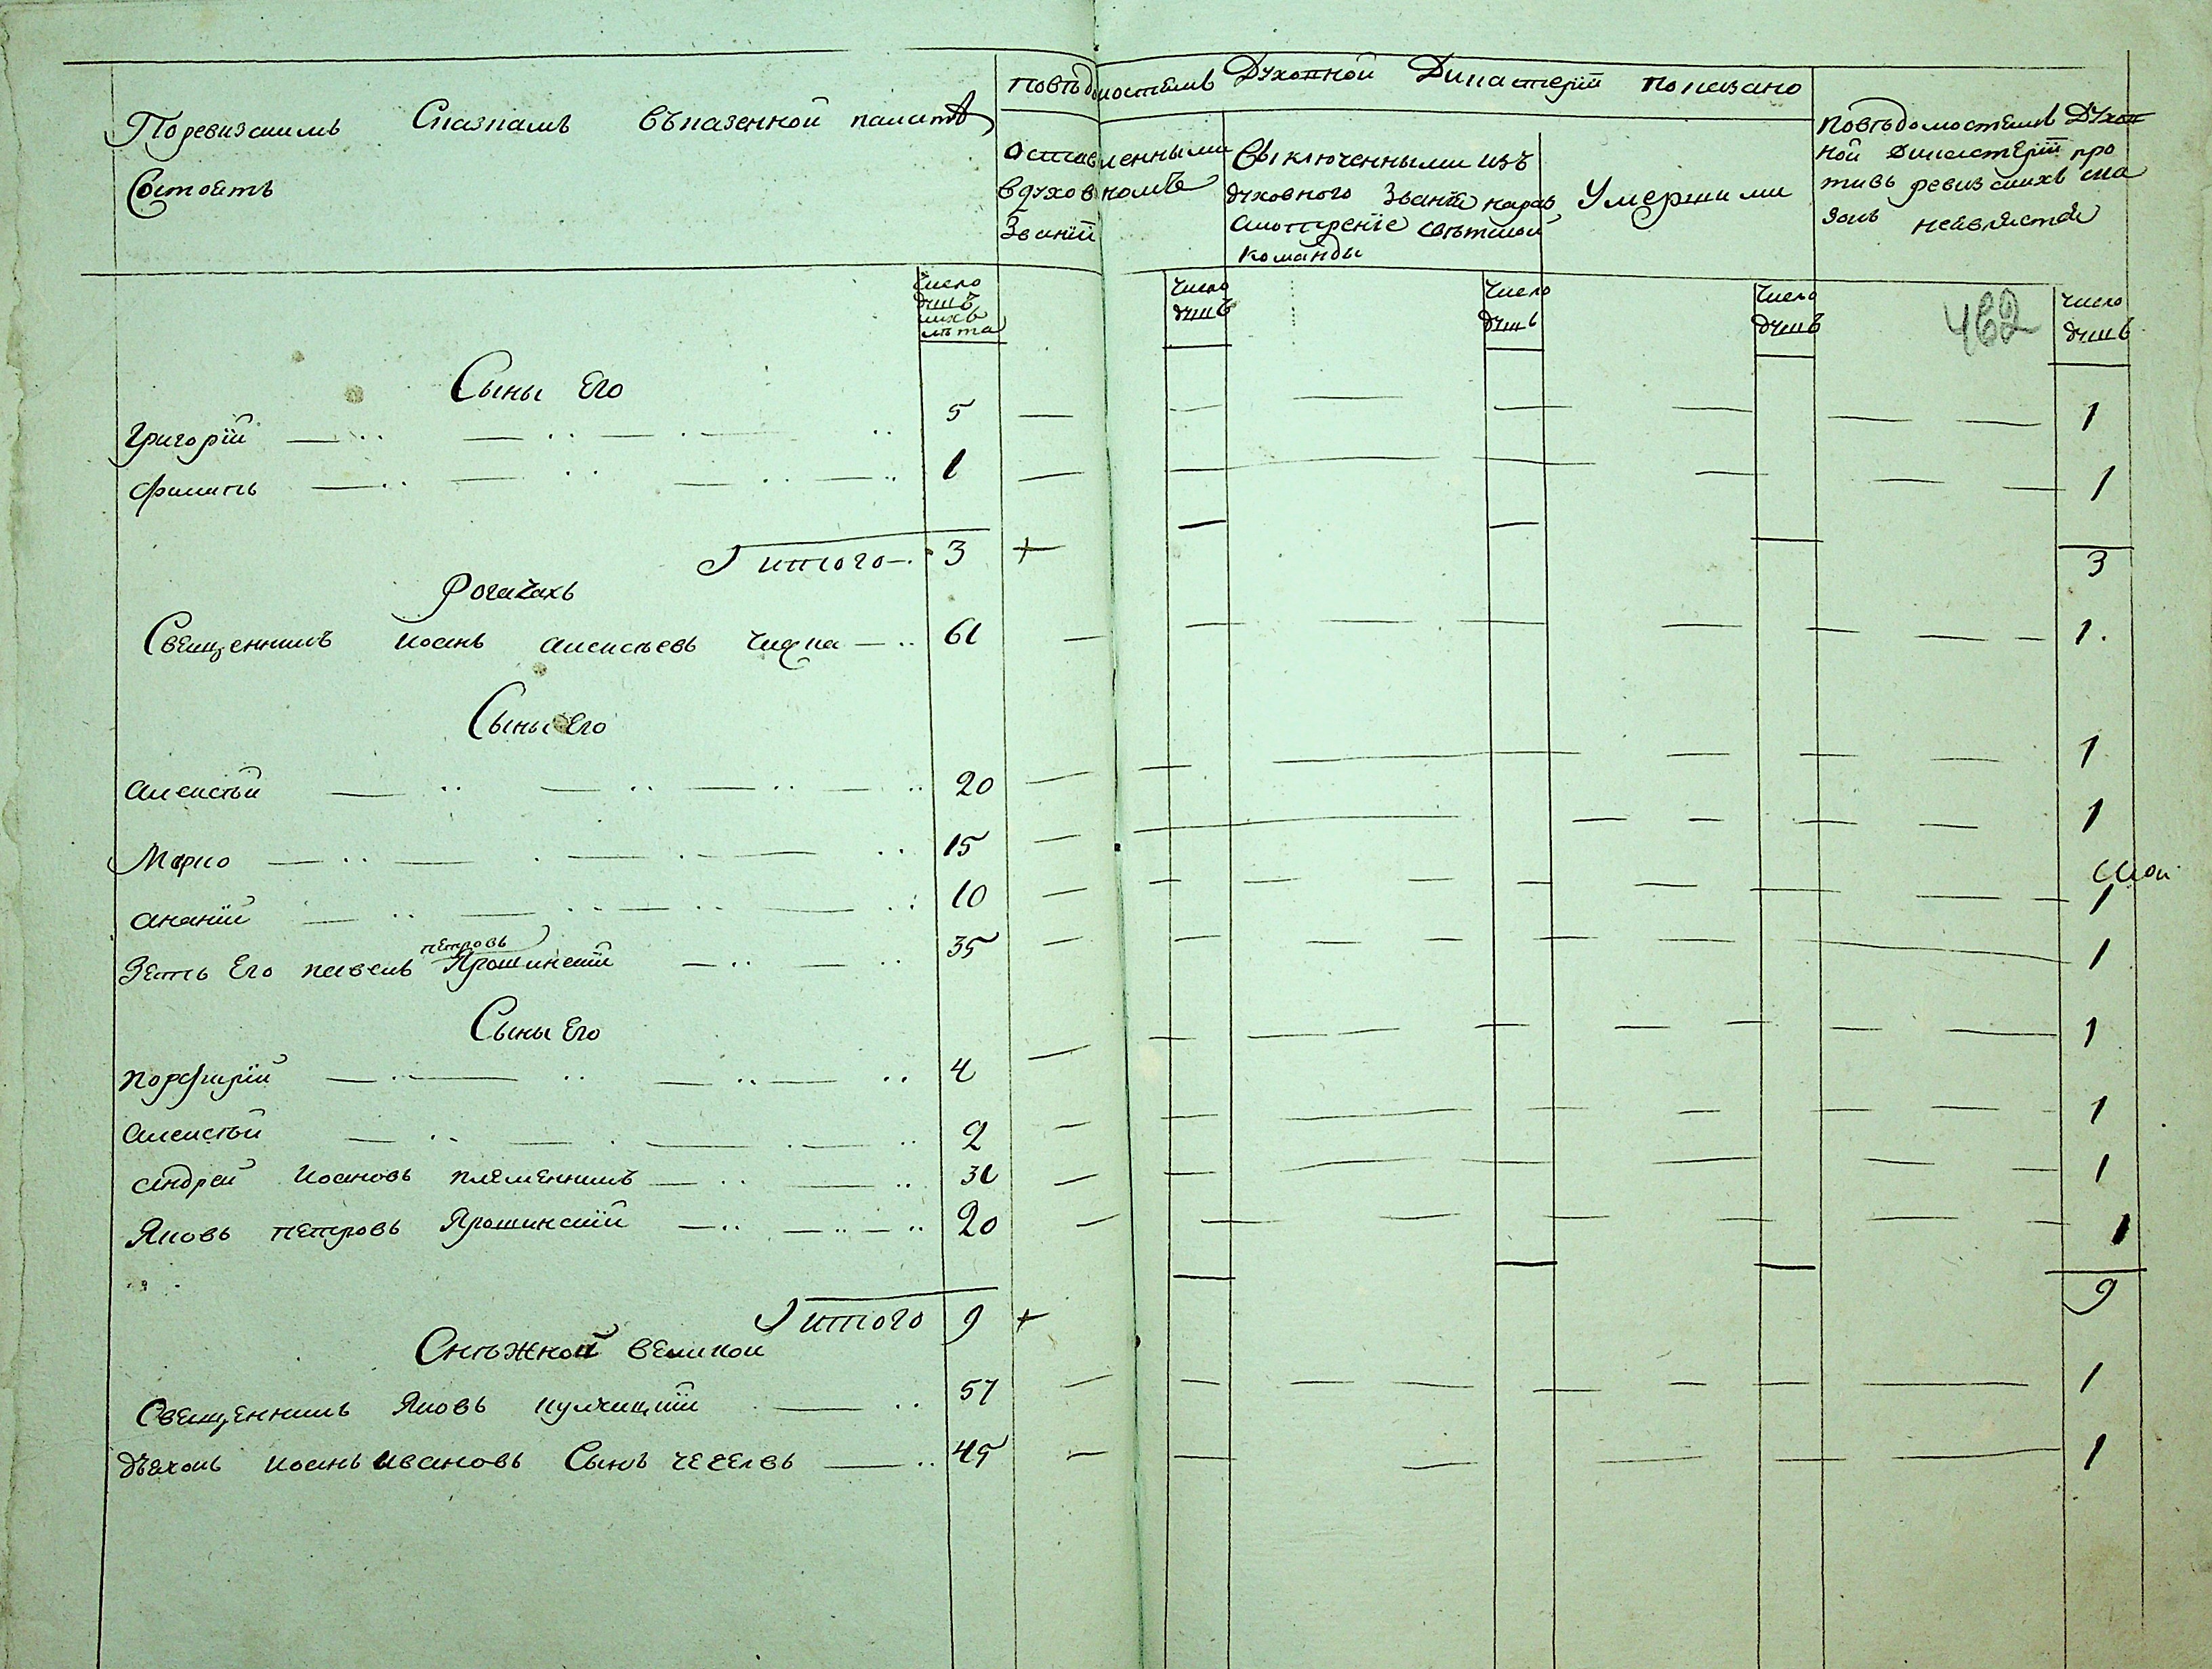 Поревизскимъ Сказкамъ въказенной палатѣ
Состоѣтъ
Повѣдомостямъ Духовной Дикастерїи показано
Оставленными
вдуховномъ
Званїи
Выключенными изъ
духовного Званїя нараз
смотрѣнїе свѣтской
команды
Умершими
Повѣдомостямъ Духов
ной Дикастерїи про
тивъ ревизскихъ ска
зокъ неявляется
число
душъ
ихъ
лѣта
число
душъ
число
душъ
число
душъ
462
число
душъ
Сыны Его
Григорїй 5 — — — — — 1
Филипъ 1 — — — — — 1
Итого 3 + — — — 3
Рогачахъ
Священникъ Иоанъ Алексѣевъ 61 — — — — — 1.
Сыны Его
Алексѣй 20 — — — — — 1
Марко 15 — — — — — 1
Ананїй 10 — — — — — 1
петровъ
Зять Его павелъ Ярошинскїй 35 — — — — — 1
Сыны Его
Порфирїй 4 — — — — — 1
Алексѣй 2 — — — — — 1
Андрей Иоановъ племенникъ 31 — — — — — 1
Яковъ петровъ Ярошинскїй 20 — — — — — 1
Итого 9 + — — — 9
Снѣжной великой
Священникъ Яковъ кулчицкїй 57 — — — — — 1
дьяконъ Иоанъ Ивановъ Сынъ 45 — — — — — 1